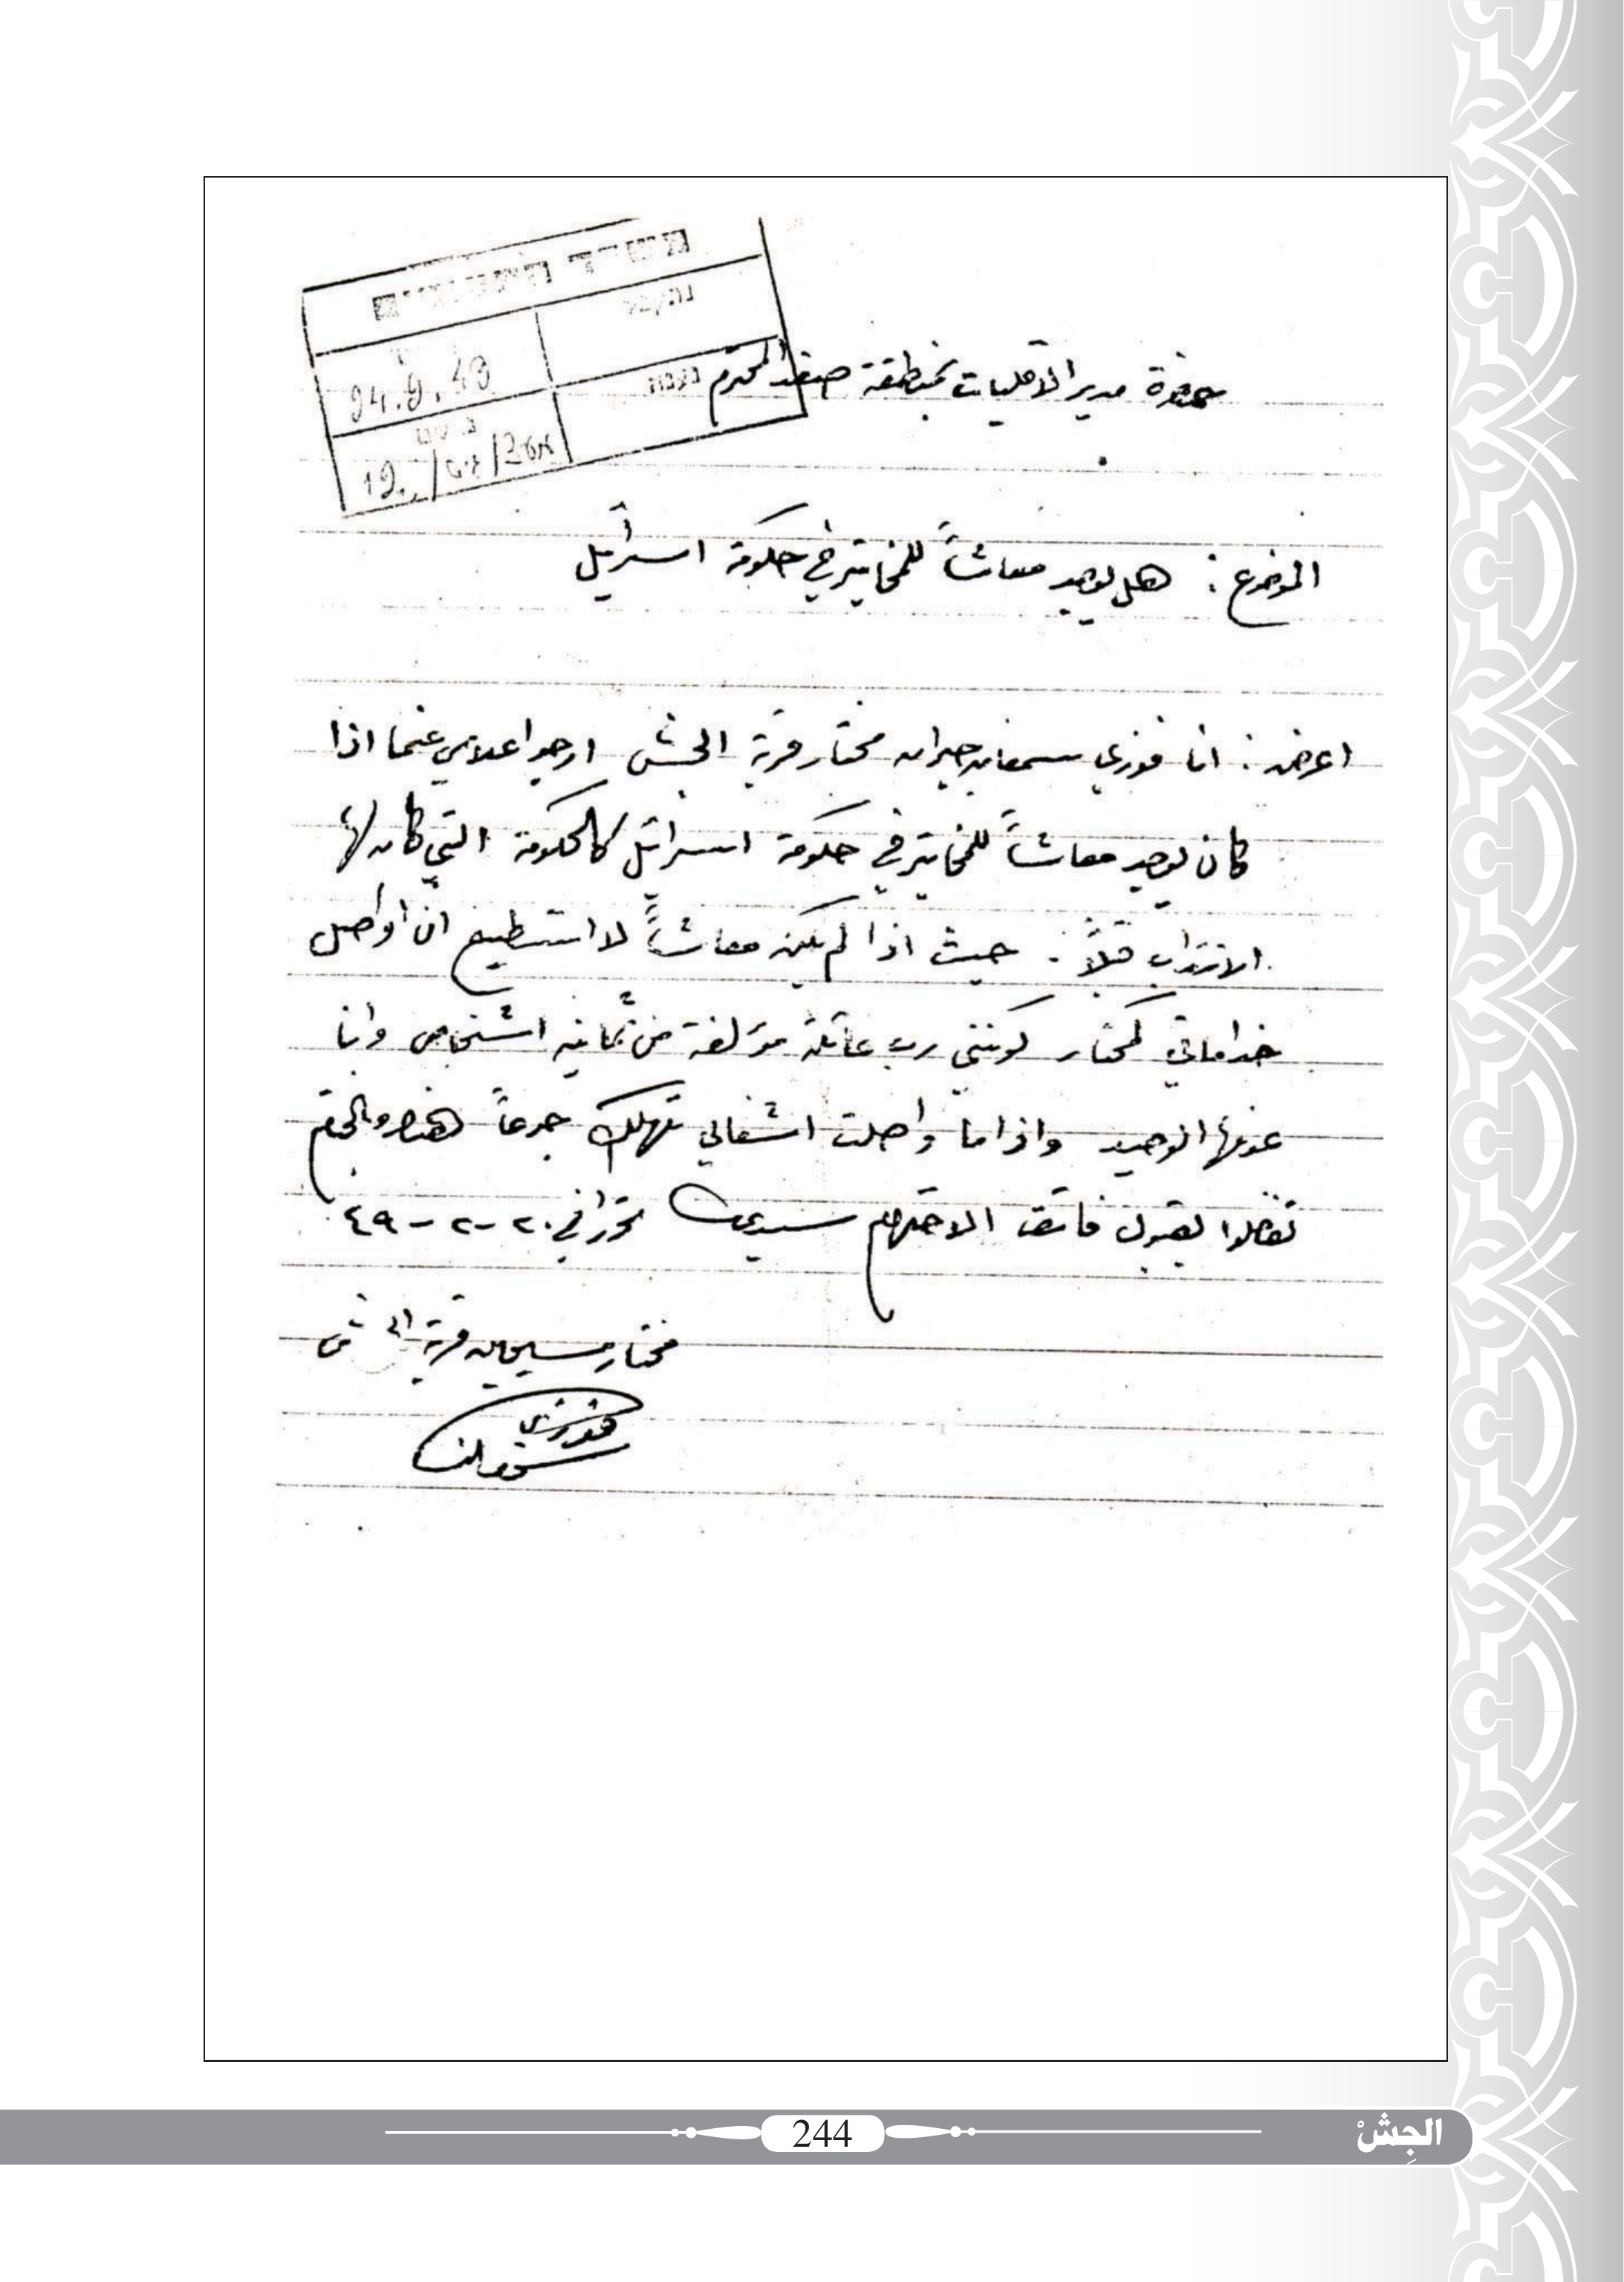 حضرة مدير الاقليات بمنطقة صفد المحترم
94.9.49
الموضوع : هل يوجد معاشاً للمخاتير في حكومة اسرائيل
اعرض : انا فوزي سمعان جبران مختار قرية الجش ارجو اعلامي عنما اذا
كان يوجد معاشاً للمخاتير في حكومة اسرائيل كالحكومة التي كان لها
الانتداب قبلاً . حيث اذا لم يكن معاشاً لا استطيع ان اواصل
خداماتي كمختار كونني رب عائلة مؤلفة من ثمانية اشخاص وانا
عونها الوحيد واذا ما واصلت اشغالي تهلك جوعاً هذا
تفضلوا بقبول فائق الاحترام سيدي تحرر في ٢٠-٢-٤٩
مختار مسيحيين قرية الجش
فوزي
سمعان
244
الجِشْ